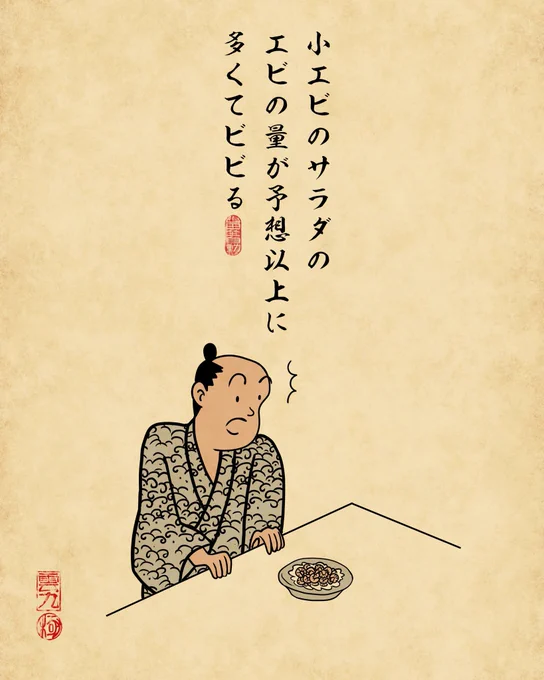 小エビのサラダの
エビの量が予想以上に
多くてビビる